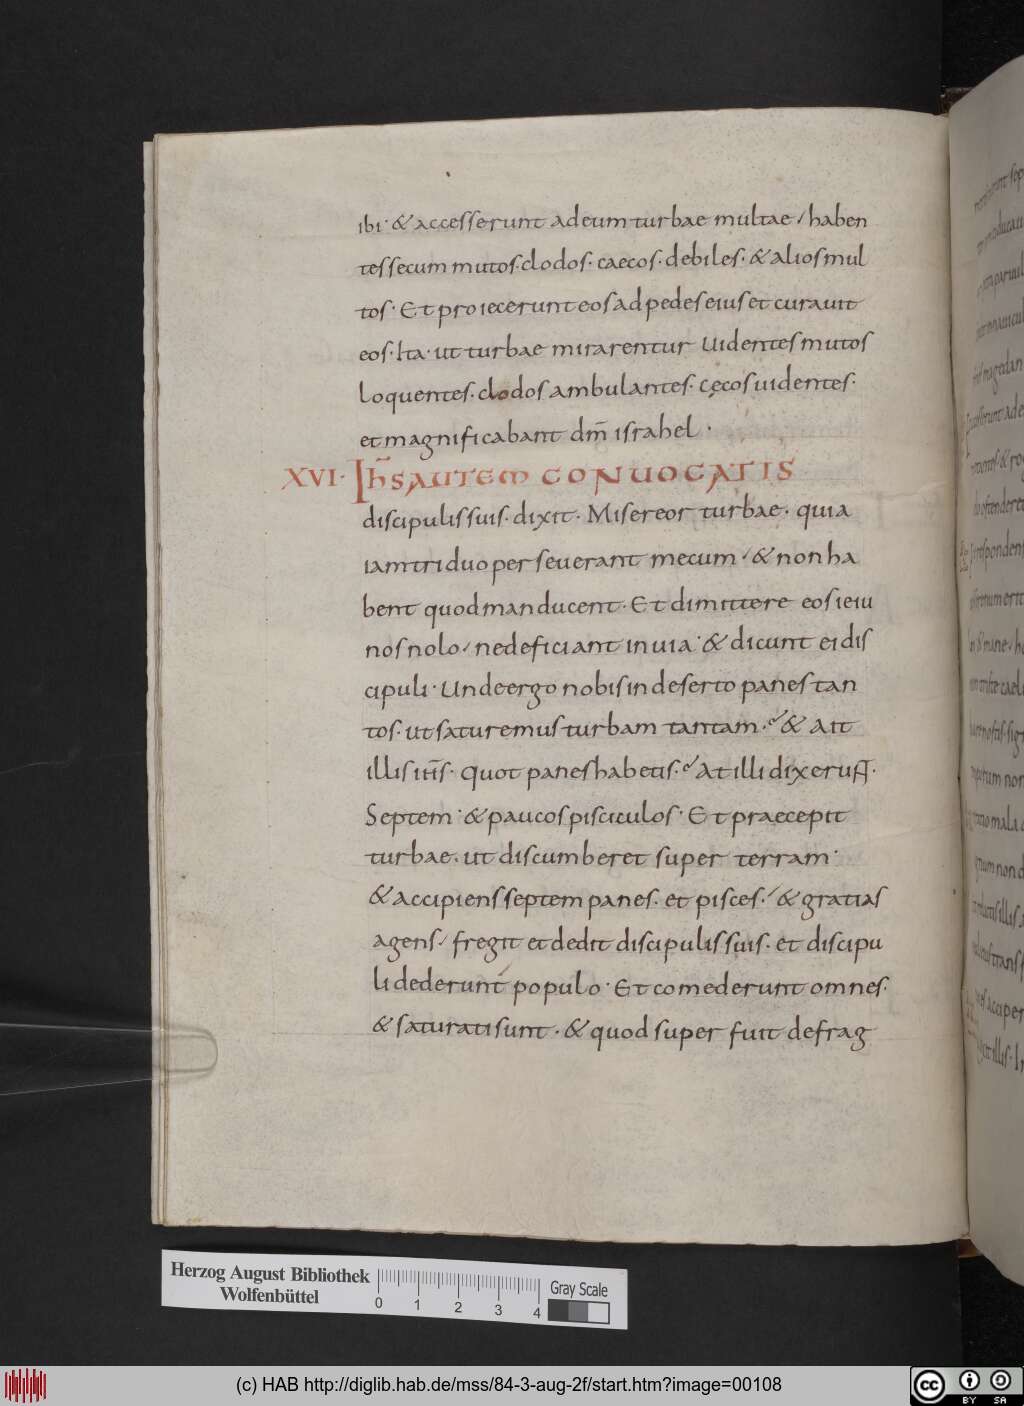 ibi· & accesserunt ad eum turbae multae / haben
tes secum mutos· clodos· caecos· debiles· & alios mul
tos· Et proiecerunt eos ad pedes eius et curauit
eos· Ita· ut turbae mirarentur uidentes mutos
loquentes· clodos ambulantes· cęcos uidentes·
et magnificabant dm̄ israhel·
XVI· Ih̄s autem conuocatis
discipulis suis· dixit· Misereor turbae· quia
iam triduo perseuerant mecum / & non ha
bent quod manducent· Et dimittere eos ieiu
nos nolo / ne deficiant in uia· & dicunt ei dis
cipuli· Unde ergo nobis in deserto panes tan
tos· ut saturemus turbam tantam· & ait
illis ih̄s· quot panes habetis· At illi dixerunt·
Septem· & paucos pisciculos· Et praecepit
turbae· ut discumberet super terram·
& accipiens septem panes· et pisces· & gratias
agens / fregit et dedit discipulis suis· et discipu
li dederunt populo· Et comederunt omnes·
& saturati sunt· & quod super fuit de frag
Herzog August Bibliothek
Wolfenbüttel
0 1 2 3 4
Gray Scale
(c) HAB http://diglib.hab.de/mss/84-3-aug-2f/start.htm?image=00108
cc BY SA